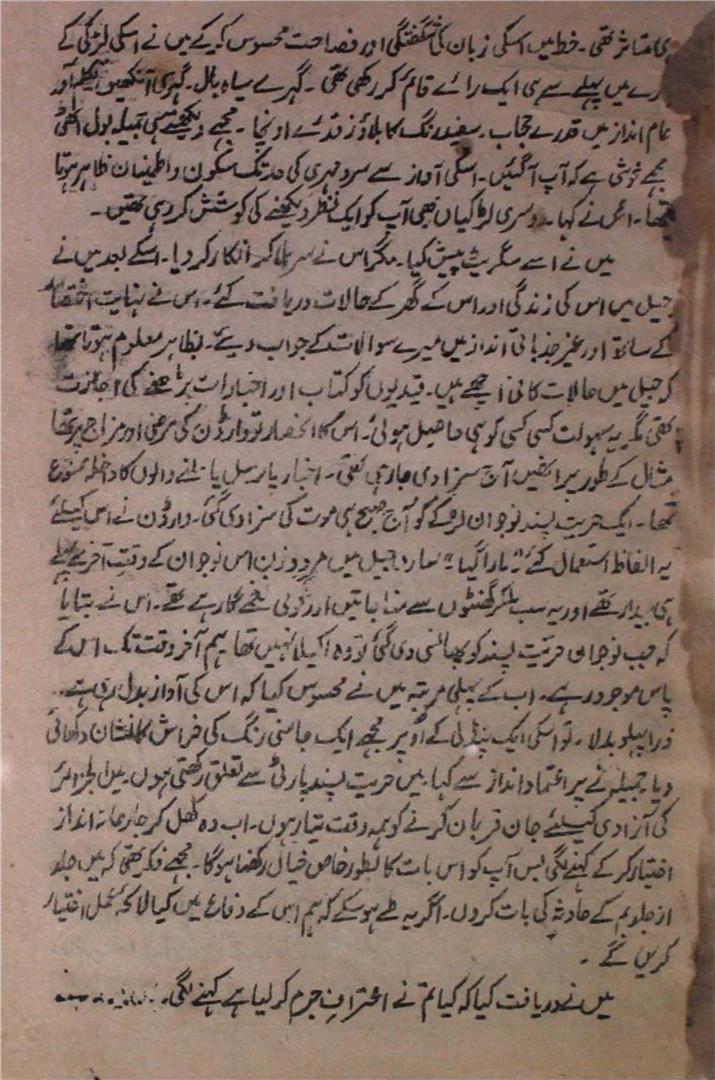 متاثر تھی۔ خط میں اسکی زبان کی شگفتگی اور فصاحت محسوس کر کے میں نے اسکی لڑکی کے
رے میں پہلے سے ہی ایک رائے قائم کر رکھی تھی۔ گہرے سیاہ بال۔ گہری آنکھیں اور
عام انداز میں قدرے حجاب۔ سفید رنگ کا بلاؤز قدرے اونچا۔ مجھے دیکھتے ہی جمیلہ بول اٹھی
مجھے خوشی ہے کہ آپ آگئیں۔ اسکی آواز سے سرد مہری کی حد تک سکون و اطمینان ظاہر ہوتا
تھا۔ اس نے کہا۔ دوسری لڑکیاں بھی آپ کو ایک نظر دیکھنے کی کوشش کر رہی تھیں۔
میں نے اسے سگریٹ پیش کیا۔ مگر اس نے سر ہلا کر انکار کر دیا۔ اسکے بعد میں نے
جیل میں اس کی زندگی اور اس کے گھر کے حالات دریافت کئے۔ اس نے نہایت اختصار
کے ساتھ اور غیر جذباتی انداز میں میرے سوالات کے جواب دیئے۔ بظاہر معلوم ہوتا تھا
کہ جیل میں حالات کافی اچھے ہیں۔ قیدیوں کو کتاب اور اخبارات پڑھنے کی اجازت
تھی مگر یہ سہولت کسی کسی کو ہی حاصل ہوئی۔ اس کا انحصار تو وارڈن کی مرضی اور مزاج پر تھا
مثال کے طور پر انھیں آج سزا دی جا رہی تھی۔ اخبار پارسل یا نے والوں کا داخلہ ممنوع
تھا۔ ایک حریت پسند نوجوان لڑکے کو آج صبح ہی موت کی سزا دی گئی۔ وارڈن نے اس کیلئے
یہ الفاظ استعمال کئے "مارا گیا" سارہ جیل میں مرد و زن اس نوجوان کے وقتِ آخر سے پہلے
ہی بیدار تھے اور یہ سب ملکر گھنٹوں سے مناجاتیں اور قومی نغمے گا رہے تھے۔ اس نے بتایا
کہ جب نوجوان حریت پسند کو پھانسی دی گئی تو وہ اکیلا نہیں تھا ہم آخر وقت تک اس کے
پاس موجود رہے۔ اب کے پہلی مرتبہ میں نے محسوس کیا کہ اس کی آواز بول رہی ہے۔
ذرا پہلو بدلا۔ تو اسکی ایک پنڈلی کے اوپر مجھے ایک جامنی رنگ کی خراش کا نشان دکھائی
دیا۔ جمیلہ نے پر اعتماد انداز سے کہا۔ میں حریت پسند پارٹی سے تعلق رکھتی ہوں۔ میں الجزائر
کی آزادی کیلئے جان قربان کرنے کو ہمہ وقت تیار ہوں۔ اب وہ کھل کر جارحانہ انداز
اختیار کر کے کہنے لگی بس آپ کو اس بات کا بطور خاص خیال رکھنا ہوگا۔ مجھے فکر تھی کہ میں جلد
از جلد بم کے حادثہ کی بات کروں۔ اگر یہ طے ہو سکے کہ ہم اس کے دفاع میں کیا لائحہ عمل اختیار
کریں گے۔
میں نے دریافت کیا کہ کیا تم نے اعترافِ جرم کر لیا ہے کہنے لگی۔